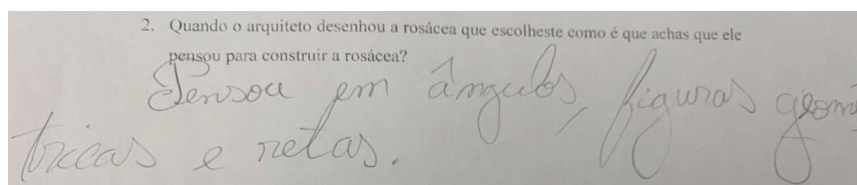 2. Quando o arquiteto desenhou a rosácea que escolheste como é que achas que ele
pensou para construir a rosácea?
Pensou em ângulos, figuras geomé
tricas e retas.